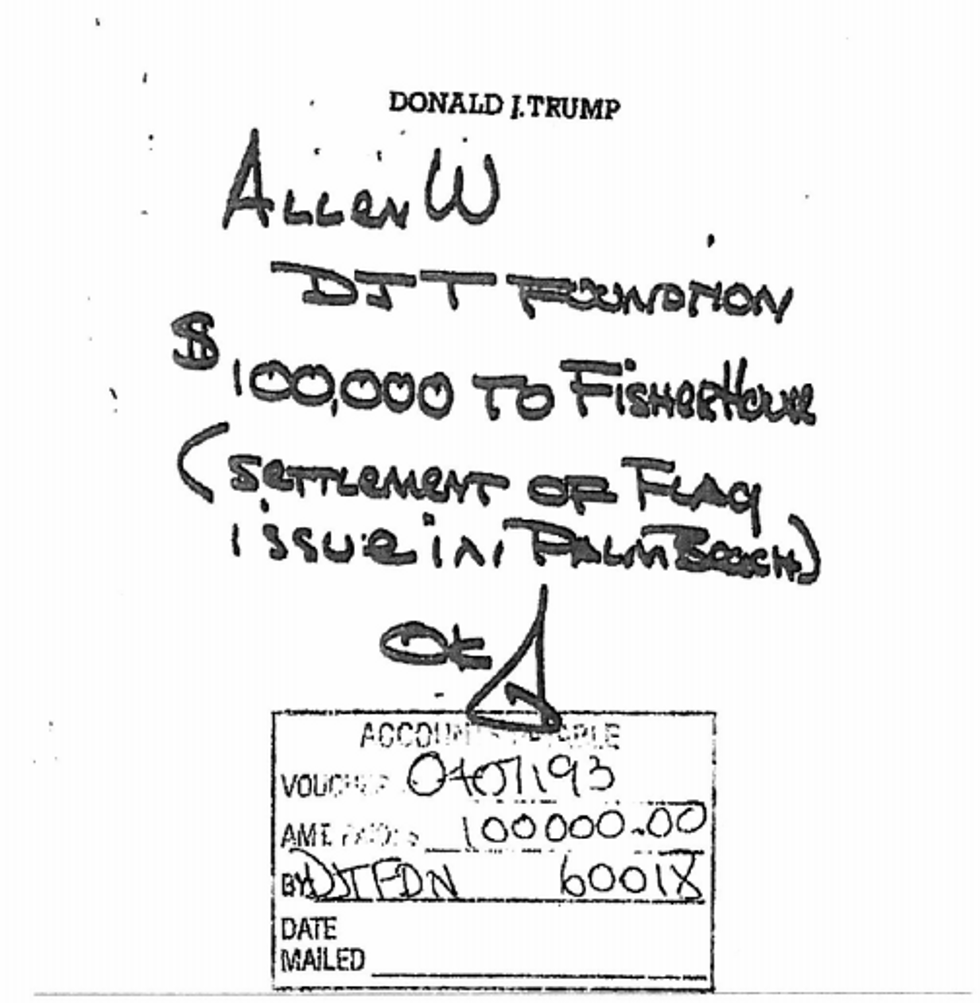 DONALD J. TRUMP
ALLEN W
DJT FOUNDATION
$100,000 TO FISHERHOUSE
(SETTLEMENT OF FLAG
ISSUE IN PALM BEACH)
OK
ACCOUNTS PAYABLE
VOUCHER
AMT PAID $ 100000.00
BY DJT FDN 60018
DATE
MAILED